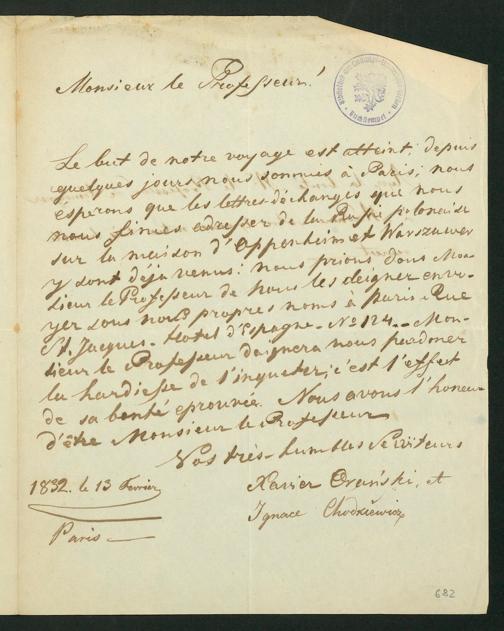 Monsieur le Professeur!
Le but de notre voyage est atteint; depuis
quelques jours nous sommes à Paris; nous
ésperons que les lettres d'échanges que nous
nous fimes adresser de la Prusse polonaise
sur la maison d'Oppenheim et Warszawer
y sont déja venus: nous prions donc Mon-
sieur le Professeur de nous les deigner envo-
yer sous nos propres noms à Paris Rue
St. Jacques - Hotel d'Espagne - No 124. - Mon-
sieur le Professeur daignera nous pardoner
la hardiesse de l'inquieter, c'est l'effet
de sa bonté eprouvée. Nous avons l'honeur
d'être Monsieur le Professeur
Vos très-humbles Serviteurs
1832. le 13 Fevrier
Xavier Orański, et
Ignace Chodkiewicz
Paris
682